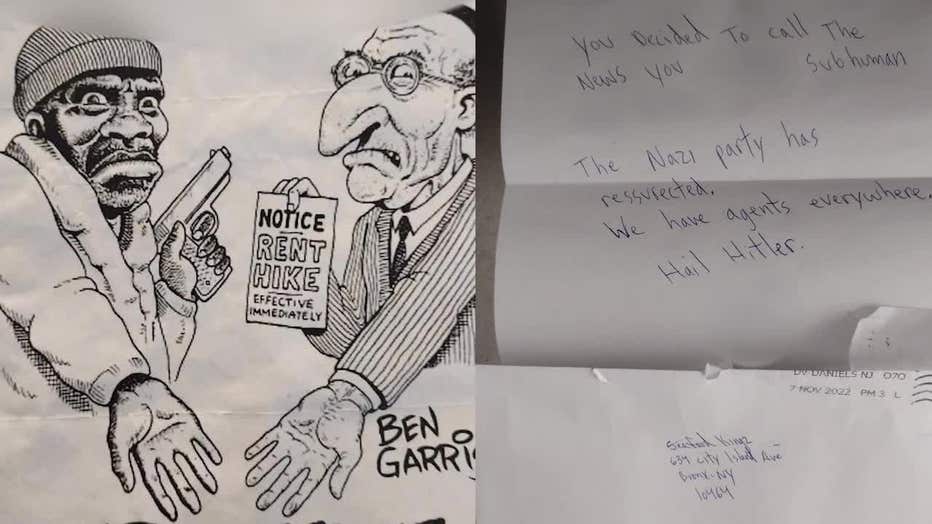 NOTICE
RENT
HIKE
EFFECTIVE
IMMEDIATELY
BEN
GARRI
You Decided To call The
News you subhuman
The Nazi party has
ressurected.
We have agents everywhere.
Hail Hitler.
DV DANIELS NJ 070
7 NOV 2022 PM 3 L
634 City Island Ave
Bronx-NY
10464